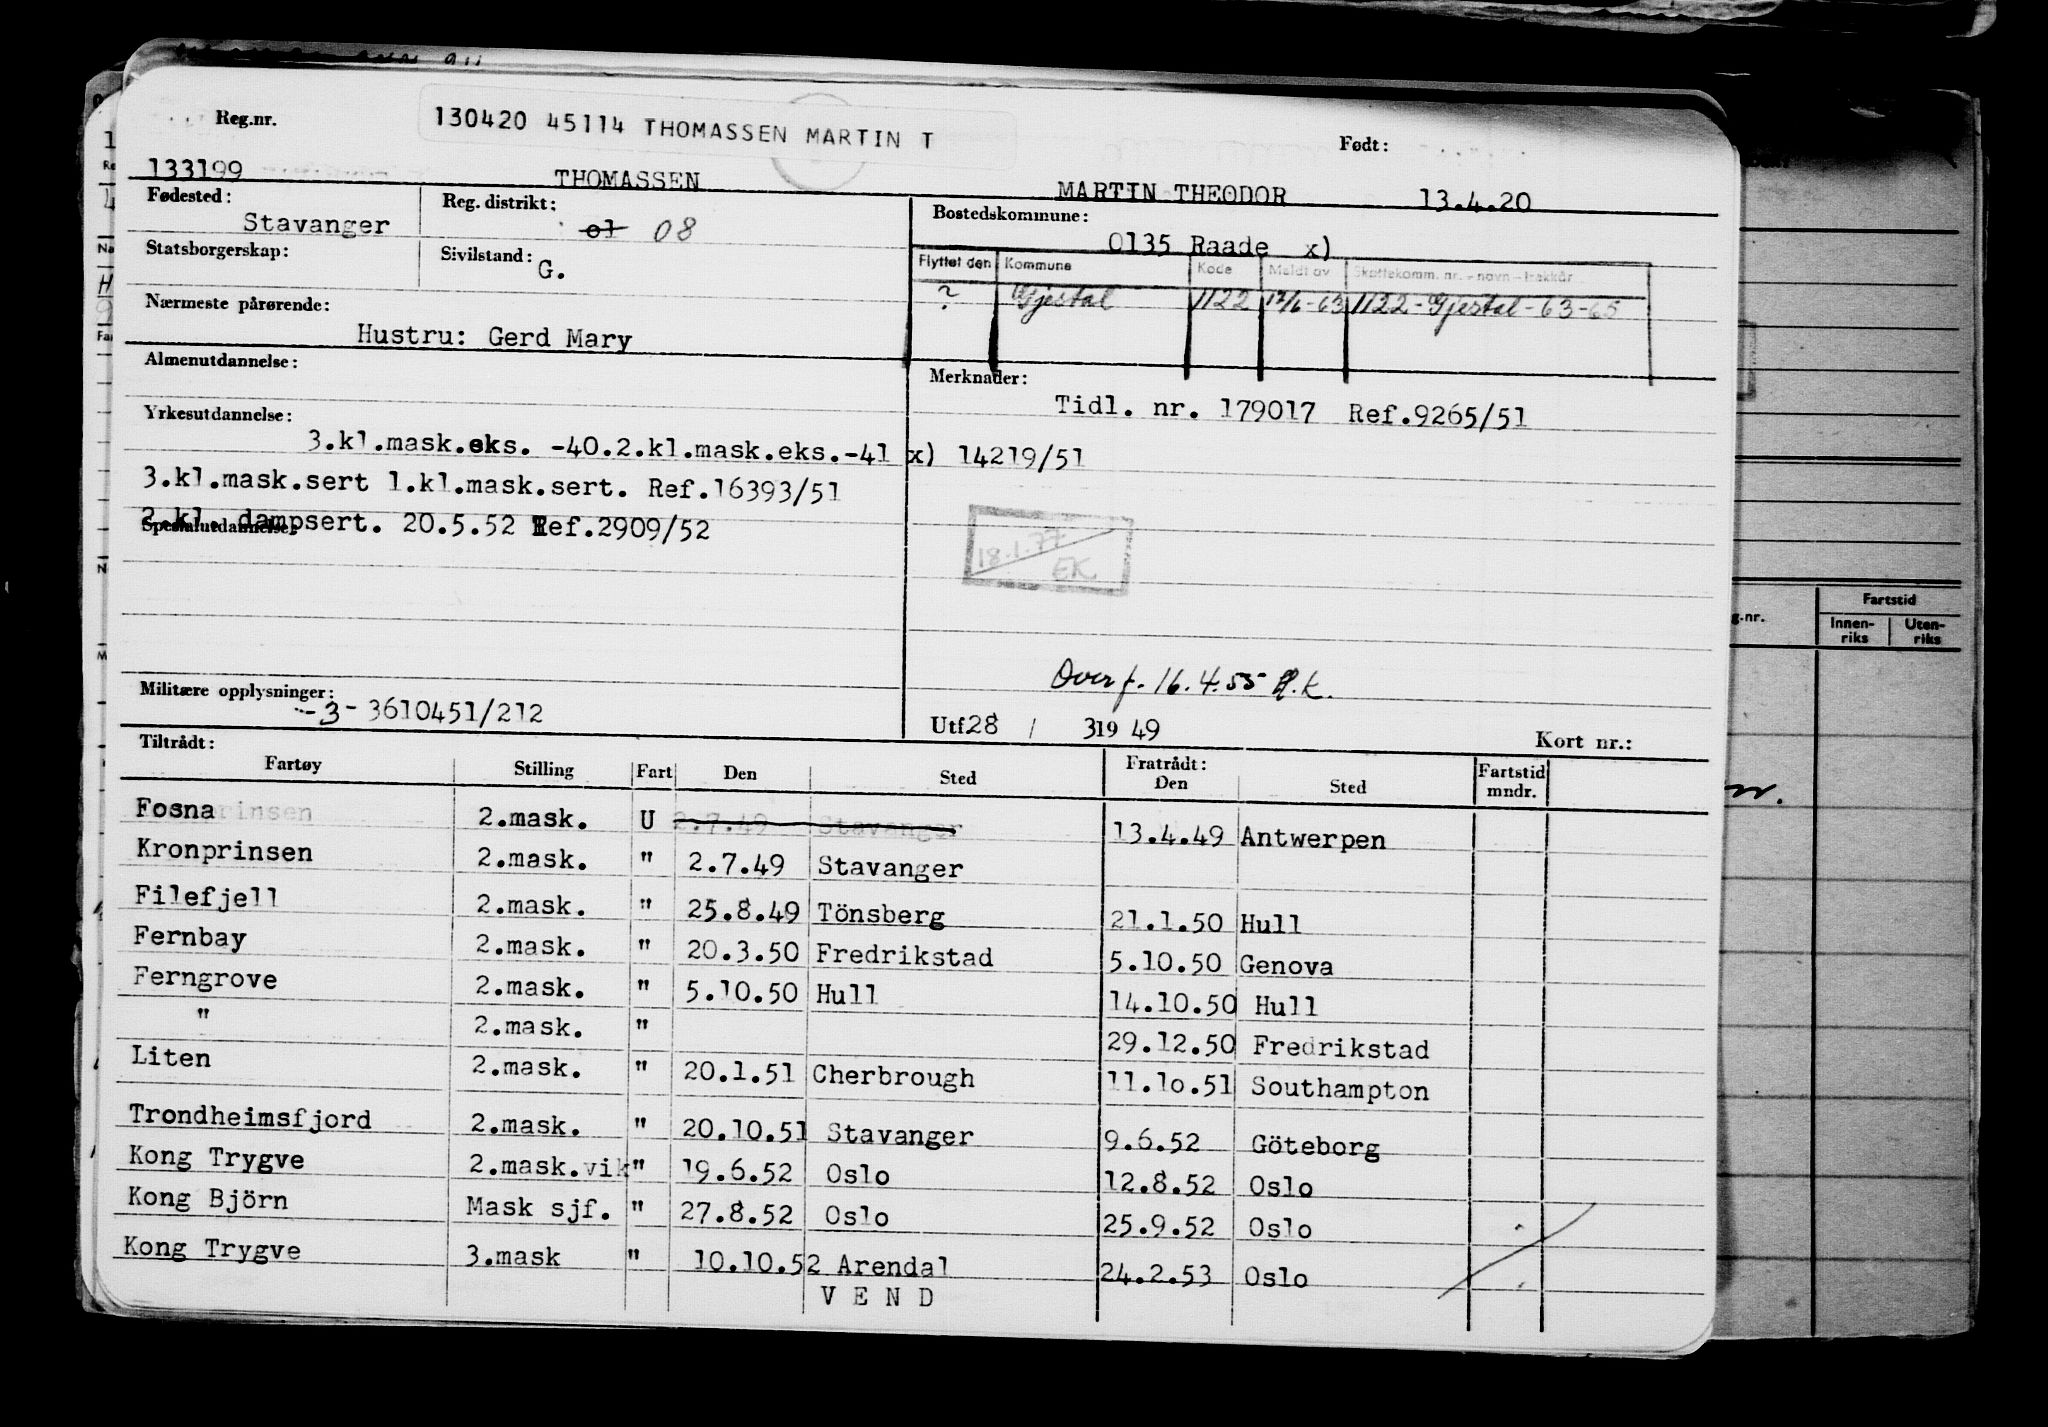 Reg.nr. 130420 45114 THOMASSEN MARTIN T Født:
133199 THOMASSEN MARTIN THEODOR 13.4.20
Fødested: Stavanger Reg. distrikt: 01 08 Bostedskommune: 0135 Raade x)
Statsborgerskap: Sivilstand: G.
Flyttet den Kommune Kode Meldt av Skattekomm. nr. - navn - trekkår
? Gjestal 1122 12/6-63 1122-Gjestal-63-65
Nærmeste pårørende: Hustru: Gerd Mary
Almenutdannelse:
Merknader: Tidl. nr. 179017 Ref.9265/51
Yrkesutdannelse: 3.kl.mask.eks. -40.2.kl.mask.eks.-41 x) 14219/51
3.kl.mask.sert 1.kl.mask.sert. Ref.16393/51
2.kl. dampsert. 20.5.52 Ref.2909/52
Spesialutdannelse:
18.1.77 EK
Overf. 16.4.55
Militære opplysninger: -3- 3610451/212
Utf28 / 319 49 Kort nr.:
Tiltrådt: Fratrådt:
Fartøy Stilling Fart Den Sted Den Sted Fartstid mndr.
Fosna 2.mask. U 2.7.49 Stavanger 13.4.49 Antwerpen
Kronprinsen 2.mask. " 2.7.49 Stavanger
Filefjell 2.mask. " 25.8.49 Tönsberg 21.1.50 Hull
Fernbay 2.mask. " 20.3.50 Fredrikstad 5.10.50 Genova
Ferngrove 2.mask. " 5.10.50 Hull 14.10.50 Hull
" 2.mask. " 29.12.50 Fredrikstad
Liten 2.mask. " 20.1.51 Cherbrough 11.10.51 Southampton
Trondheimsfjord 2.mask. " 20.10.51 Stavanger 9.6.52 Göteborg
Kong Trygve 2.mask.vik " 19.6.52 Oslo 12.8.52 Oslo
Kong Björn Mask sjf. " 27.8.52 Oslo 25.9.52 Oslo
Kong Trygve 3.mask " 10.10.52 Arendal 24.2.53 Oslo
V E N D
Fartstid
Innen-riks Uten-riks